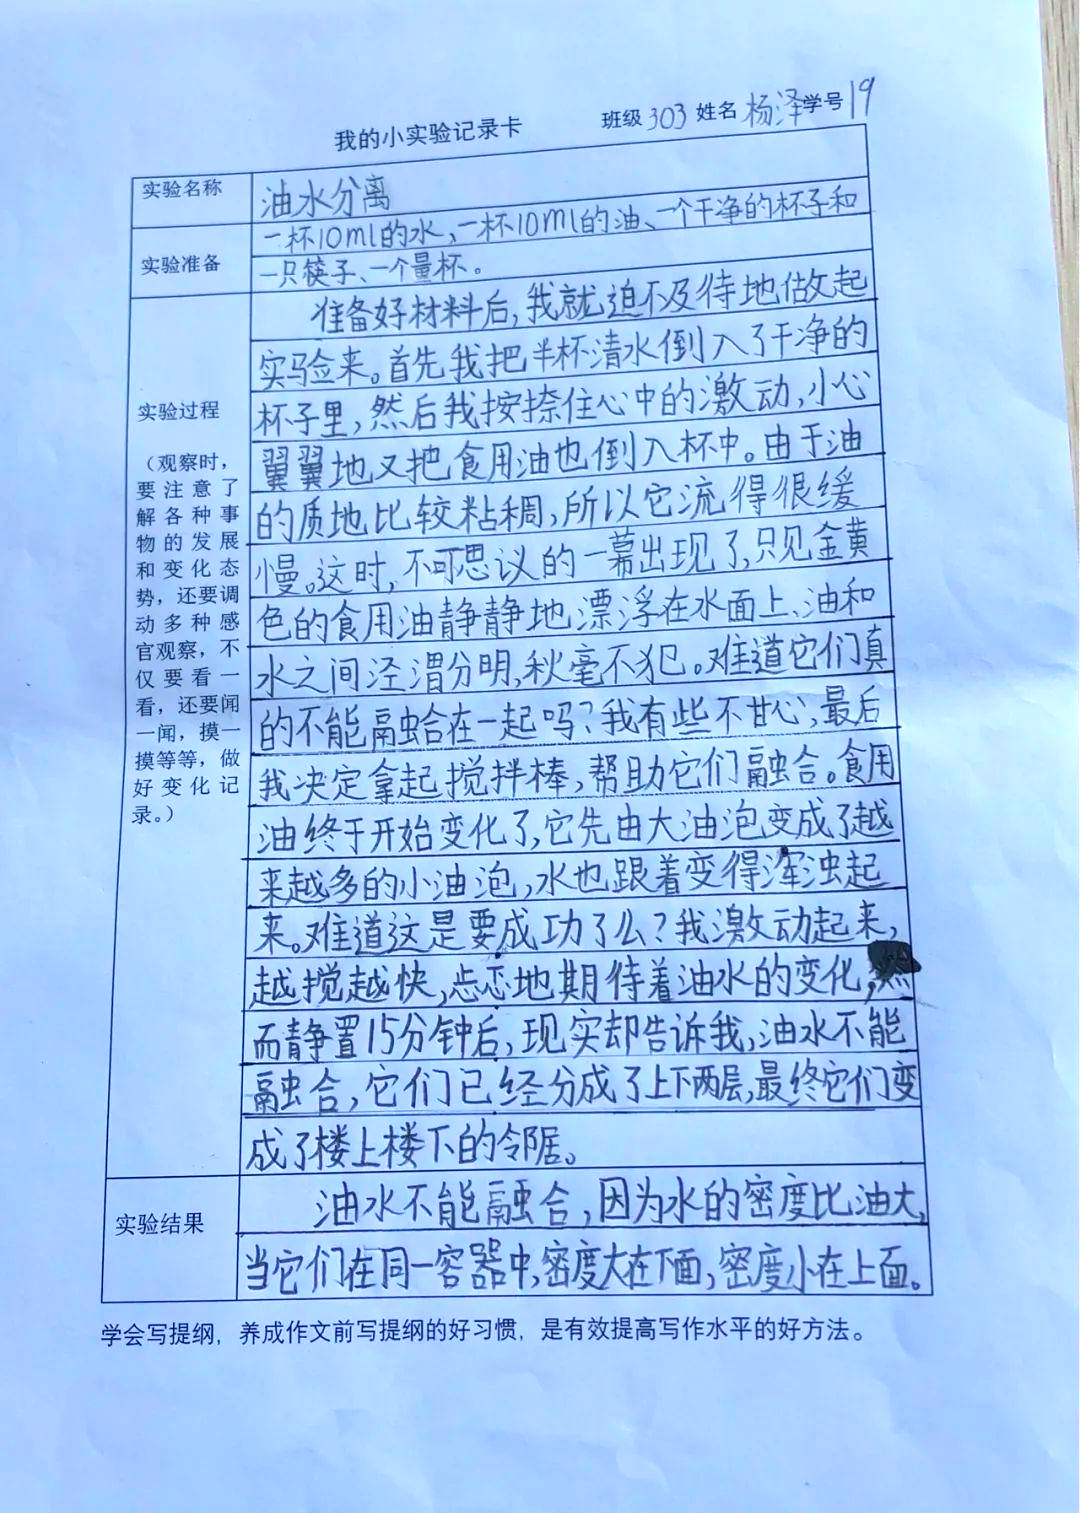 我的小实验记录卡 班级 303 姓名 杨泽 学号 19
实验名称
油水分离
实验准备
一杯10ml的水,一杯10ml的油、一个干净的杯子和
一只筷子、一个量杯。
实验过程
(观察时,
要注意了
解各种事
物的发展
和变化态
势,还要调
动多种感
官观察,不
仅要看一
看,还要闻
一闻,摸一
摸等等,做
好变化记
录。)
准备好材料后,我就迫不及待地做起
实验来。首先我把半杯清水倒入了干净的
杯子里,然后我按捺住心中的激动,小心
翼翼地又把食用油也倒入杯中。由于油
的质地比较粘稠,所以它流得很缓
慢。这时,不可思议的一幕出现了,只见金黄
色的食用油静静地漂浮在水面上、油和
水之间泾渭分明,秋毫不犯。难道它们真
的不能融合在一起吗?我有些不甘心,最后
我决定拿起搅拌棒,帮助它们融合。食用
油终于开始变化了,它先由大油泡变成了越
来越多的小油泡,水也跟着变得浑浊起
来。难道这是要成功了么?我激动起来,
越搅越快,忐忑地期待着油水的变化,然
而静置15分钟后,现实却告诉我,油水不能
融合,它们已经分成了上下两层,最终它们变
成了楼上楼下的邻居。
实验结果
油水不能融合,因为水的密度比油大,
当它们在同一容器中,密度大在下面,密度小在上面。
学会写提纲,养成作文前写提纲的好习惯,是有效提高写作水平的好方法。